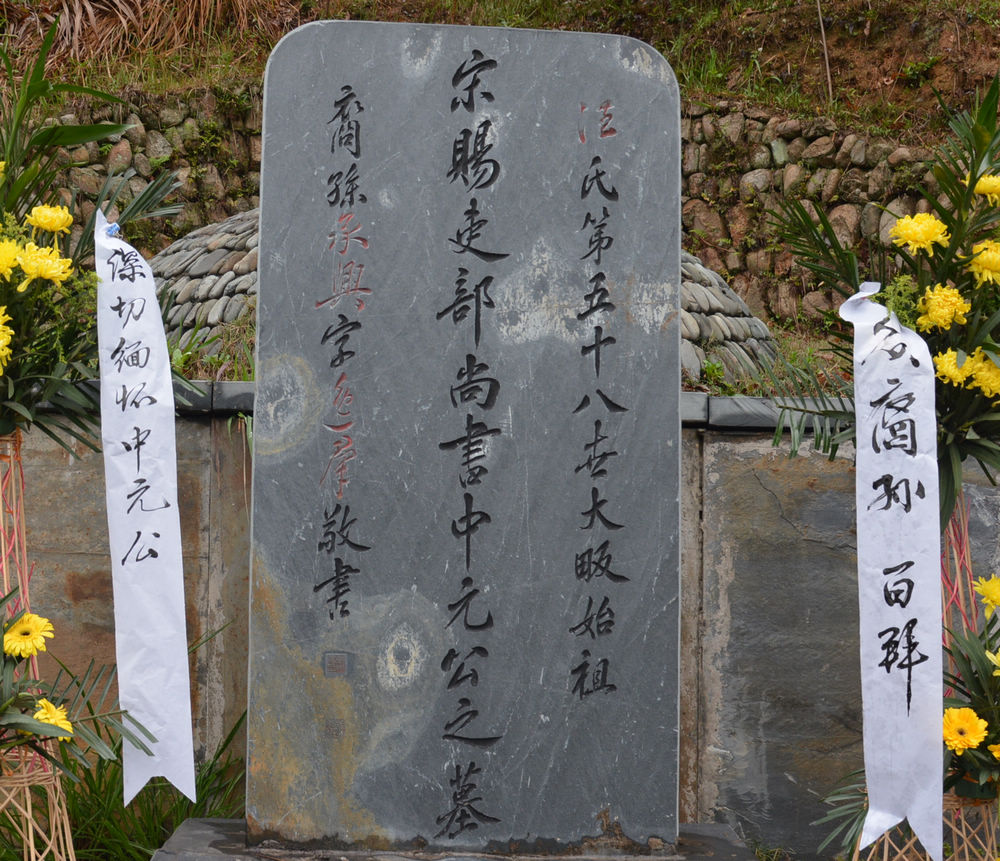 众裔孙 百拜
汪氏第五十八世大畈始祖
宋賜吏部尚書中元公之墓
裔孫承興字逸羣敬書
深切缅怀中元公